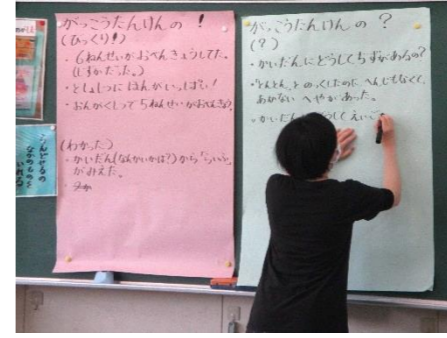 がっこうたんけんの！
（びっくり！）
・６ねんせいがおべんきょうしてた。
（しずかだった。）
・としょしつにほんがいっぱい！
・おんがくしつで５ねんせいがおべんきょう
（わかった）
・かいだん（なんかいかは？）から
がみえた。
がっこうたんけんの？
（？）
・かいだんにどうしてちずがあるの？
・とんとん、とのっくしたのに、へんじもなくて、
あかないへやがあった。
・かいだん
うしてえいご